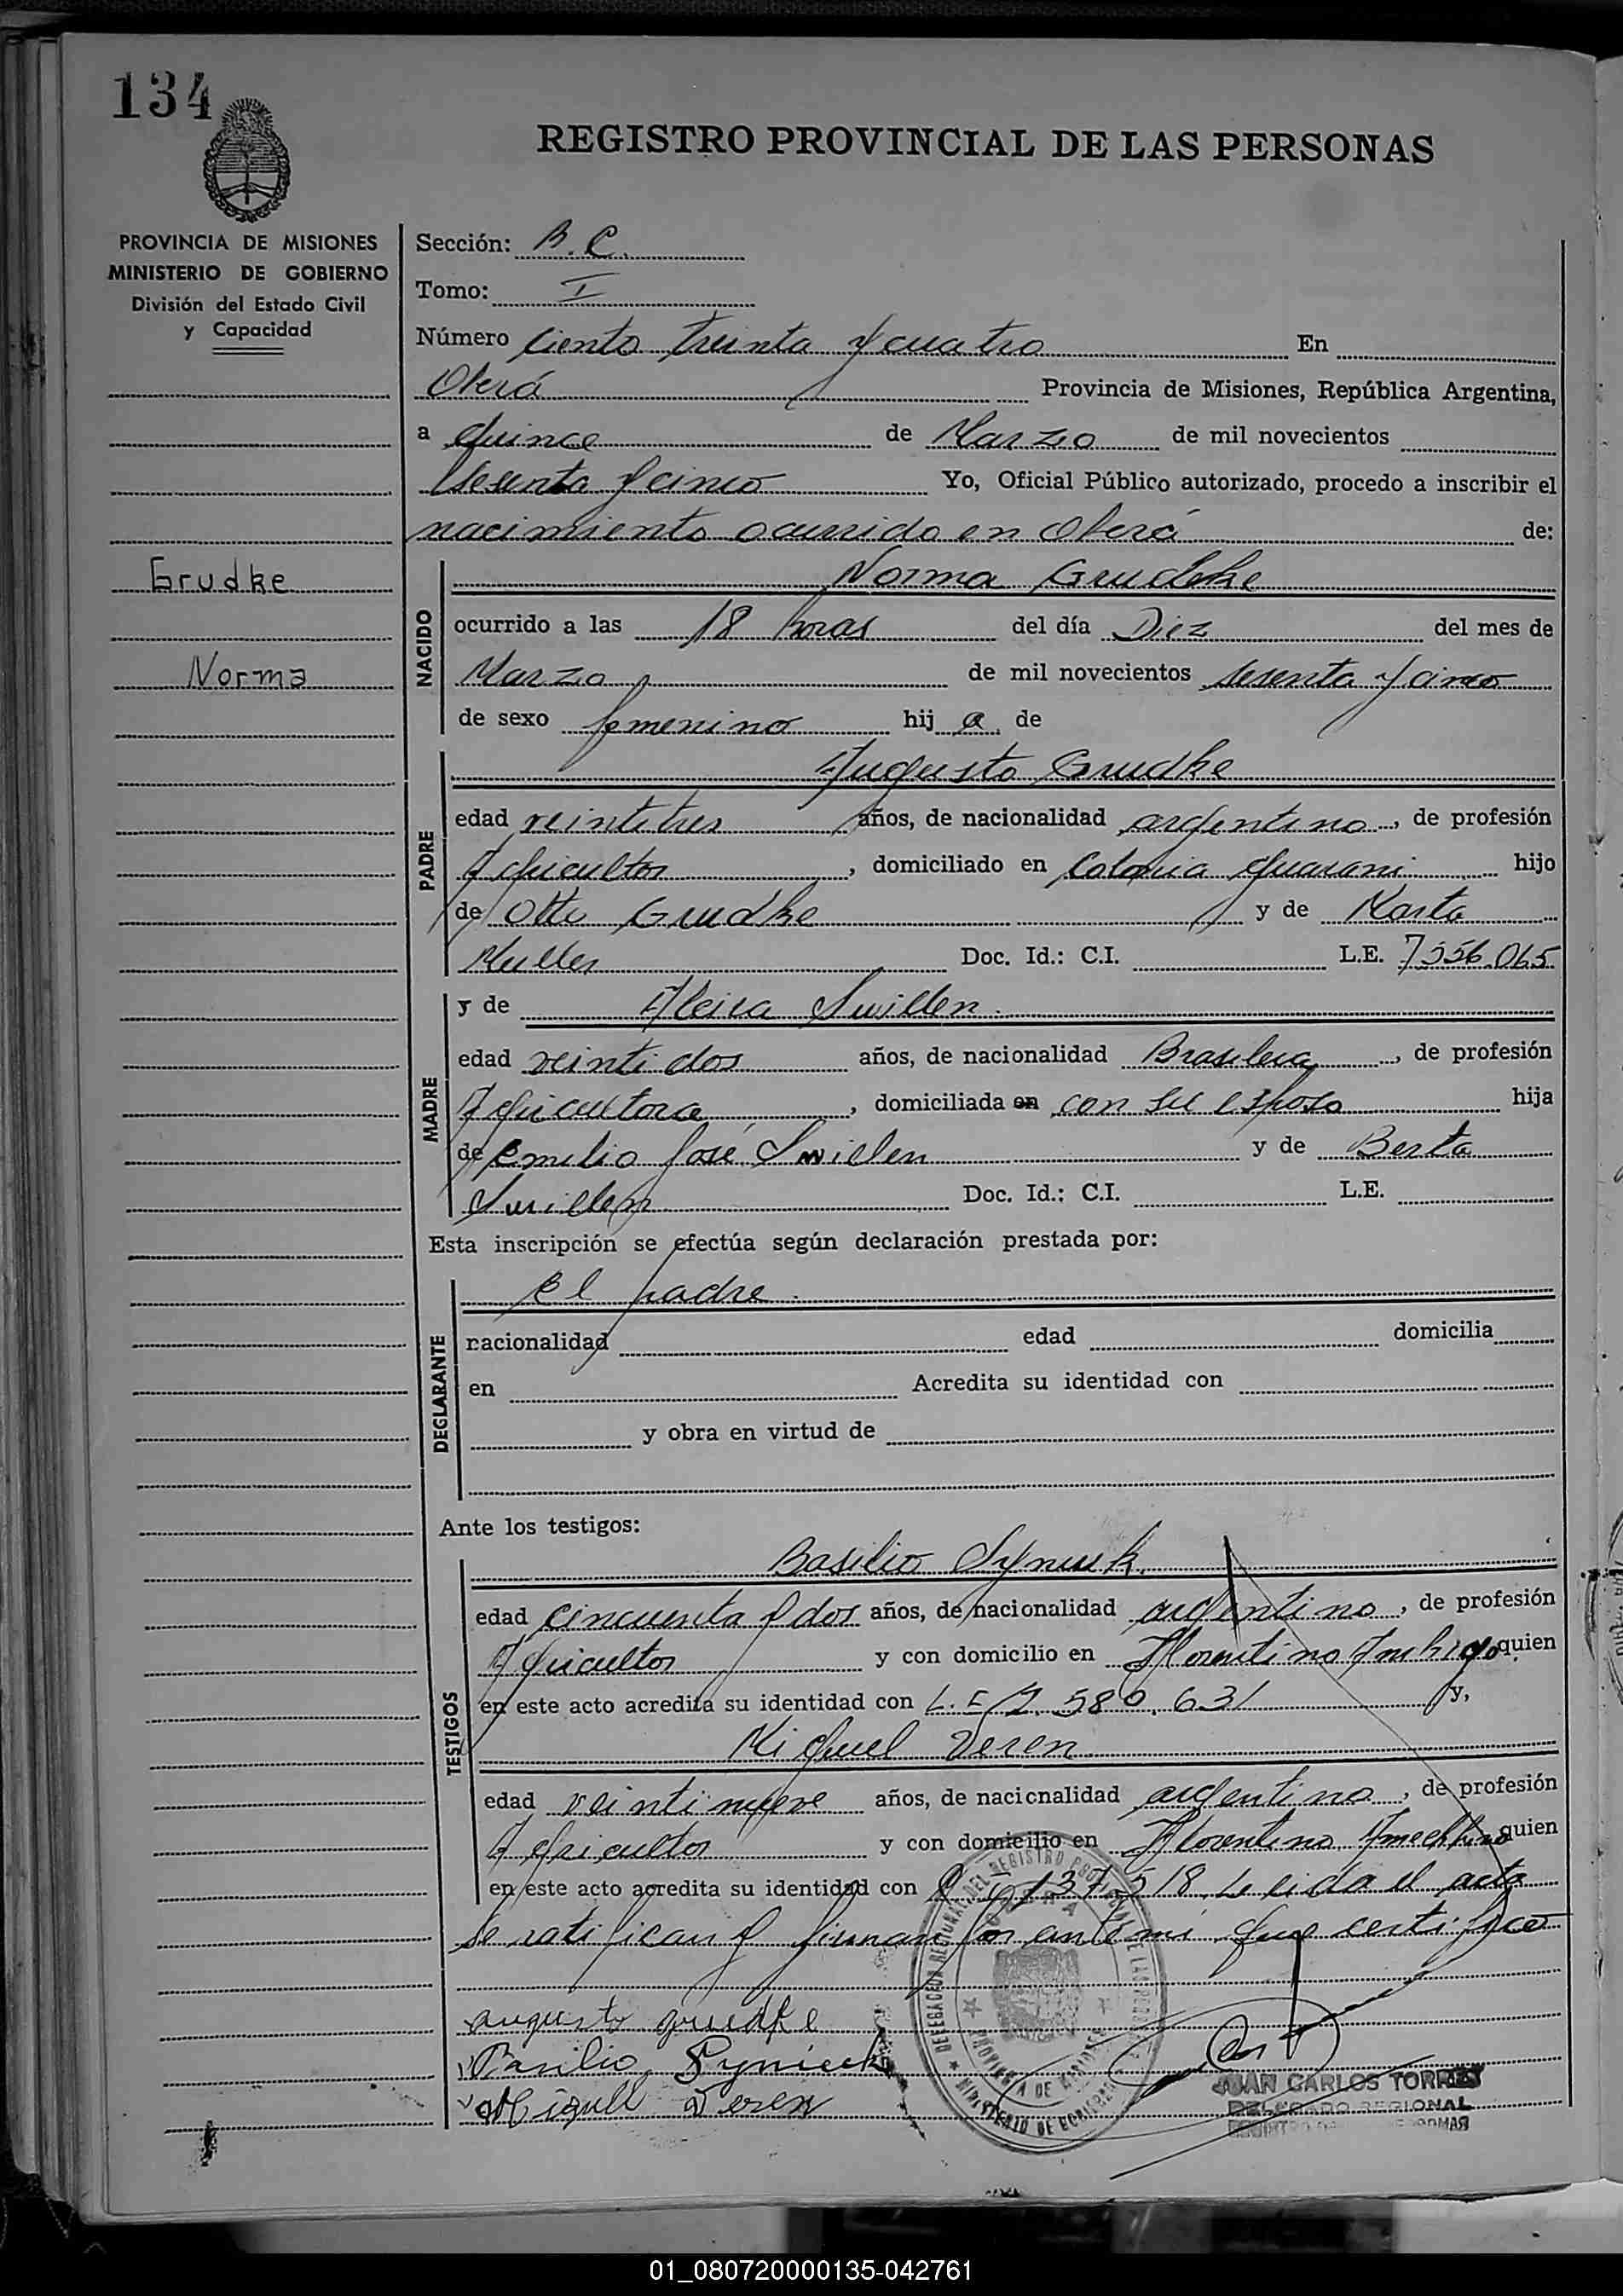 134
REGISTRO PROVINCIAL DE LAS PERSONAS
PROVINCIA DE MISIONES
MINISTERIO DE GOBIERNO
División del Estado Civil
y Capacidad
Grudke
Norma
Sección: B.C.
Tomo: I
Número Ciento treinta y cuatro En
Oberá Provincia de Misiones, República Argentina,
a quince de Marzo de mil novecientos
Sesenta y cinco Yo, Oficial Público autorizado, procedo a inscribir el
nacimiento ocurrido en Oberá de:
NACIDO
Norma Grudke
ocurrido a las 18 horas del día Diez del mes de
Marzo de mil novecientos sesenta y cinco
de sexo femenino hij a de
PADRE
Augusto Grudke
edad veintitres años, de nacionalidad argentino, de profesión
Agricultor, domiciliado en Colonia Guarani hijo
de Otto Grudke y de Marta
Muller Doc. Id.: C.I. L.E. 7556.065
MADRE
y de Swillen.
edad veintidos años, de nacionalidad Brasilera, de profesión
Agricultora, domiciliada en con su esposo hija
de Emilio José Swillen y de Berta
Swillen Doc. Id.: C.I. L.E.
Esta inscripción se efectúa según declaración prestada por:
DECLARANTE
el padre.
nacionalidad edad domicilia
en Acredita su identidad con
y obra en virtud de
Ante los testigos:
TESTIGOS
Basilio Syniuk.
edad cincuenta y dos años, de nacionalidad argentino, de profesión
Agricultor y con domicilio en Florentino quien
en este acto acredita su identidad con L.E. 580.631 y,
Miguel Deren
edad veintinueve años, de nacionalidad argentino, de profesión
Agricultor y con domicilio en Florentino quien
en este acto acredita su identidad con Leida el acta
se ratifican y firman por ante mi que certifico
augusto grudke
Basilio
Miguel Deren
JUAN CARLOS TORRES
DELEGADO REGIONAL
PROVINCIA DE MISIONES
MINISTERIO DE GOBIERNO
01_080720000135-042761